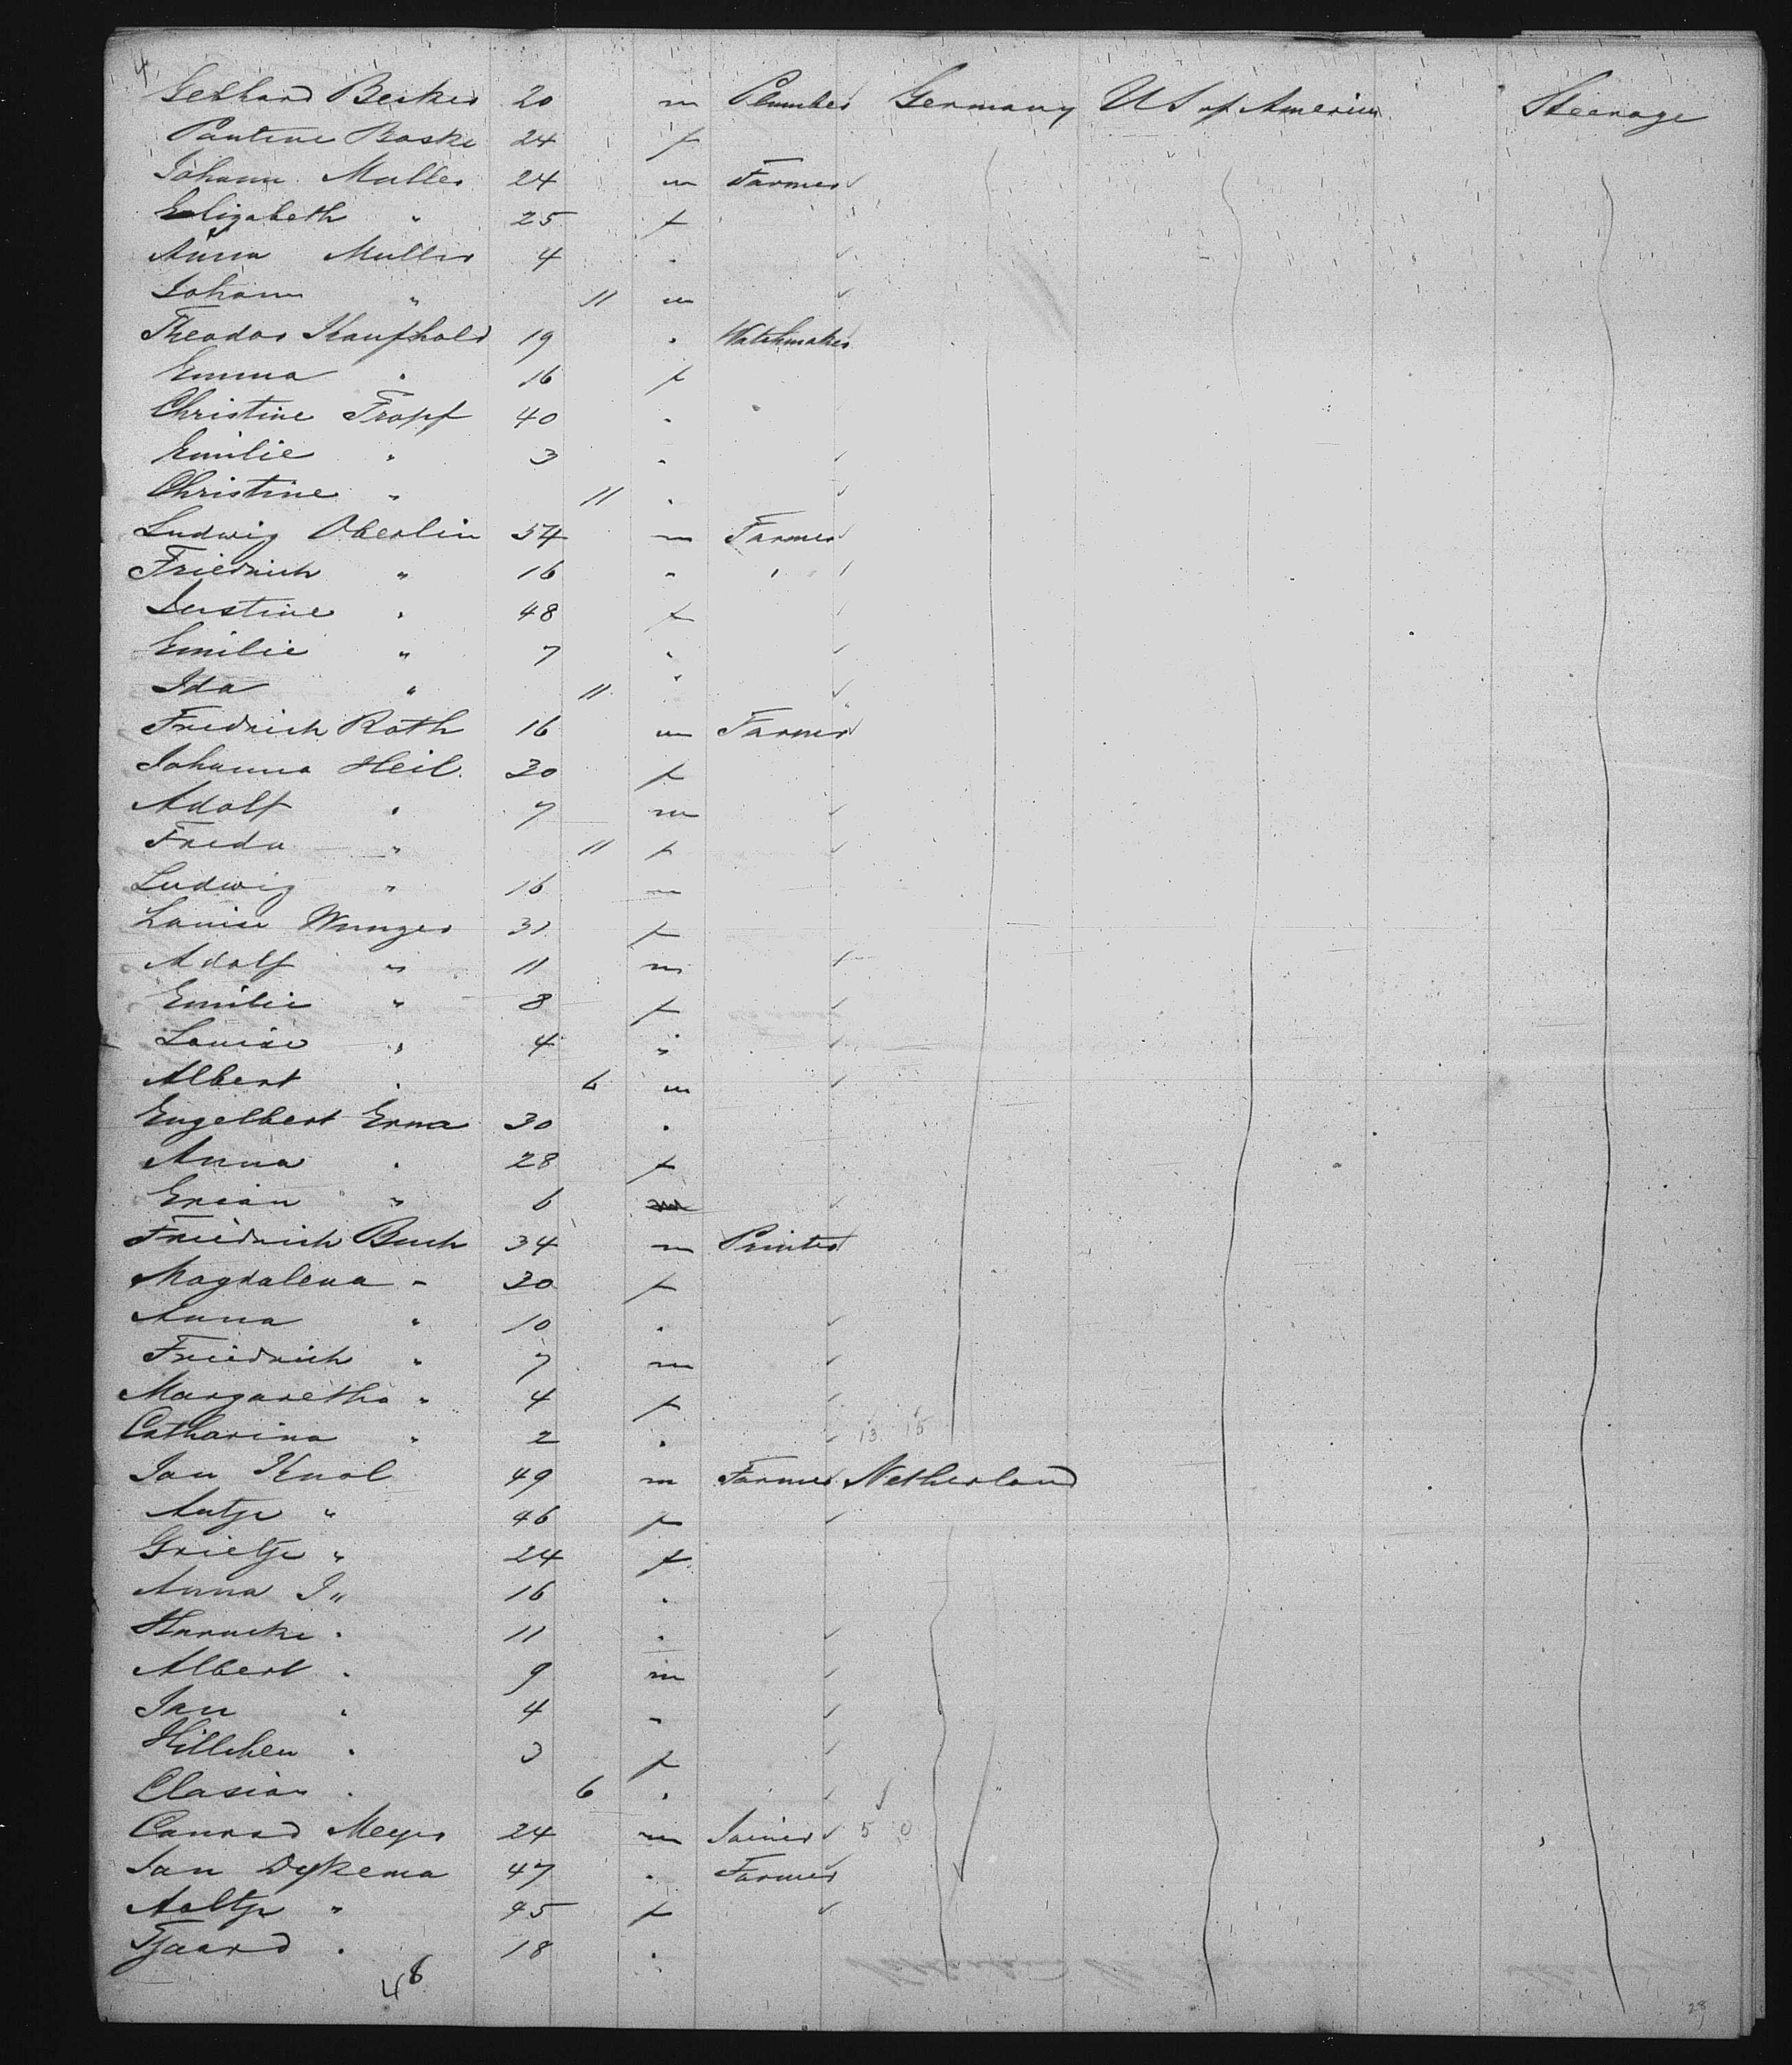 4
Gebhard Becker 20 m Plumber Germany U S of America Steerage
Pauline Baske 24 f
Johann Muller 24 m Farmer
Elizabeth " 25 f
Anna Muller 4 "
Johann " 11 m
Theodor Kaufhold 19 " Watchmaker
Emma " 16 f
Christine Tropf 40 "
Emilie " 3 "
Christine " 11 "
Ludwig Oberlin 54 m Farmer
Friedrich " 16 " "
Justine " 48 f
Emilie " 7 "
Ida " 11 "
Friedrich Roth 16 m Farmer
Johanna Heil 30 f
Adolf " 7 m
Freda " 11 f
Ludwig " 16 m
Louise Wunger 31 f
Adolf " 11 m
Emilie " 8 f
Louise " 4 "
Albert " 6 m
Engelbert Erna 30 "
Anna " 28 f
Erian " 6 m
Friedrich Buch 34 m Printer
Magdalena " 30 f
Anna " 10 "
Friedrich " 7 m
Margaretha " 4 f
Catharina " 2 " 13 15
Jan Knol 49 m Farmer Netherland
Antje " 46 f
Grietje " 24 f
Anna J " 16 "
Harmke " 11 "
Albert " 9 m
Jan " 4 "
Hillchen " 3 f
Clasian " 6 "
Conrad Meyer 24 m Joiner 5 0
Jan Dykema 47 " Farmer
Aaltje " 45 f
Tjaard " 18 "
48
28